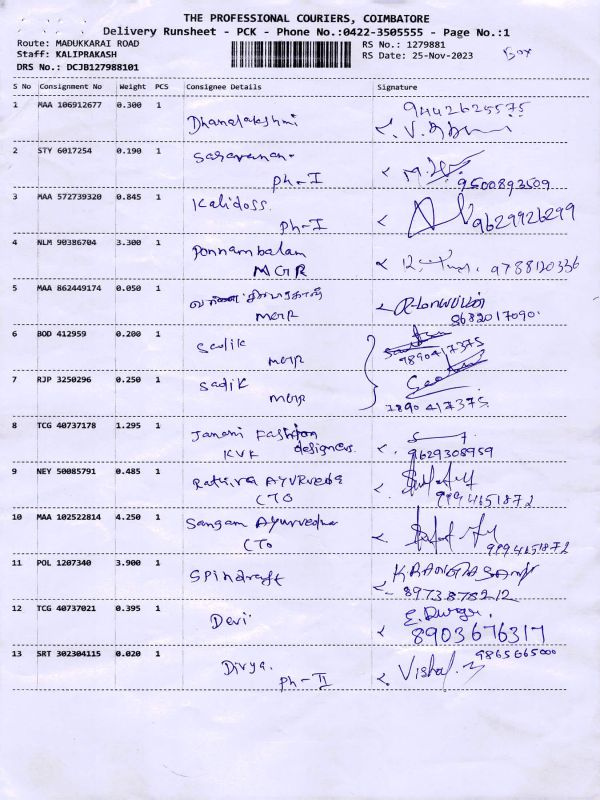 THE PROFESSIONAL COURIERS, COIMBATORE
Delivery Runsheet - PCK - Phone No.:0422-3505555 - Page No.:1
Route: MADUKKARAI ROAD
RS No.: 1279881
Staff: KALIPRAKASH
RS Date: 25-Nov-2023
Box
DRS No.: DCJB127988101
S No Consignment No Weight PCS Consignee Details Signature
1 MAA 106912677 0.300 1
9442625575
Dhanalakshmi
2 STY 6017254 0.190 1 Saravanan.
Ph-I 9500893509
3 MAA 572739320 0.845 1 Kalidoss.
Ph-I 9629926299
4 NLM 90386704 3.300 1 Ponnambalam
MGR 9788120336
5 MAA 862449174 0.050 1
MGR 8682017090.
6 BOD 412959 0.200 1 Sadik
MGR 9890417375
7 RJP 3250296 0.250 1 Sadik
MGR 9890417375
8 TCG 40737178 1.295 1 Janani Fashion
KVK designers. 9629308959
9 NEY 50085791 0.485 1 AYURveda
CTO 9994651872
10 MAA 102522814 4.250 1 Sangam Ayurvedha
CTO 9994651872
11 POL 1207340 3.900 1 Spindraft K RANGASAMY
8973878212
12 TCG 40737021 0.395 1 Devi E. Durga.
8903676317
13 SRT 302304115 0.020 1 Divya. Vishal. 9865665000
Ph-II